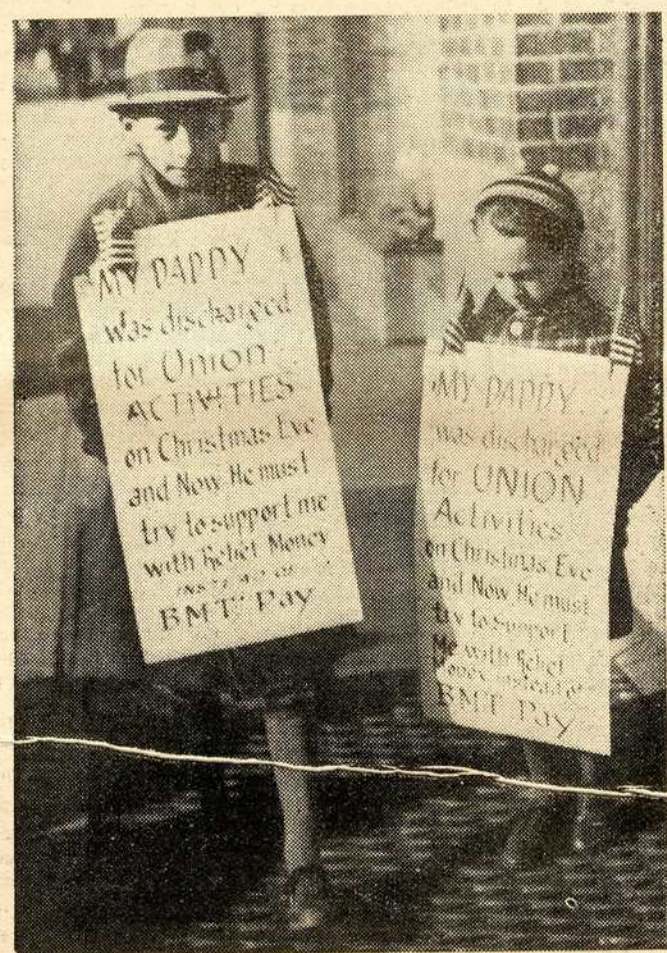 MY PAPPY
was discharged
for Union
ACTIVITIES
on Christmas Eve
and Now He must
try to support me
with Relief Money
INSTEAD OF
BMT Pay
MY PAPPY
was discharged
for UNION
Activities
on Christmas Eve
and Now, He must
try to support
Me with Relief
Money instead of
BMT Pay